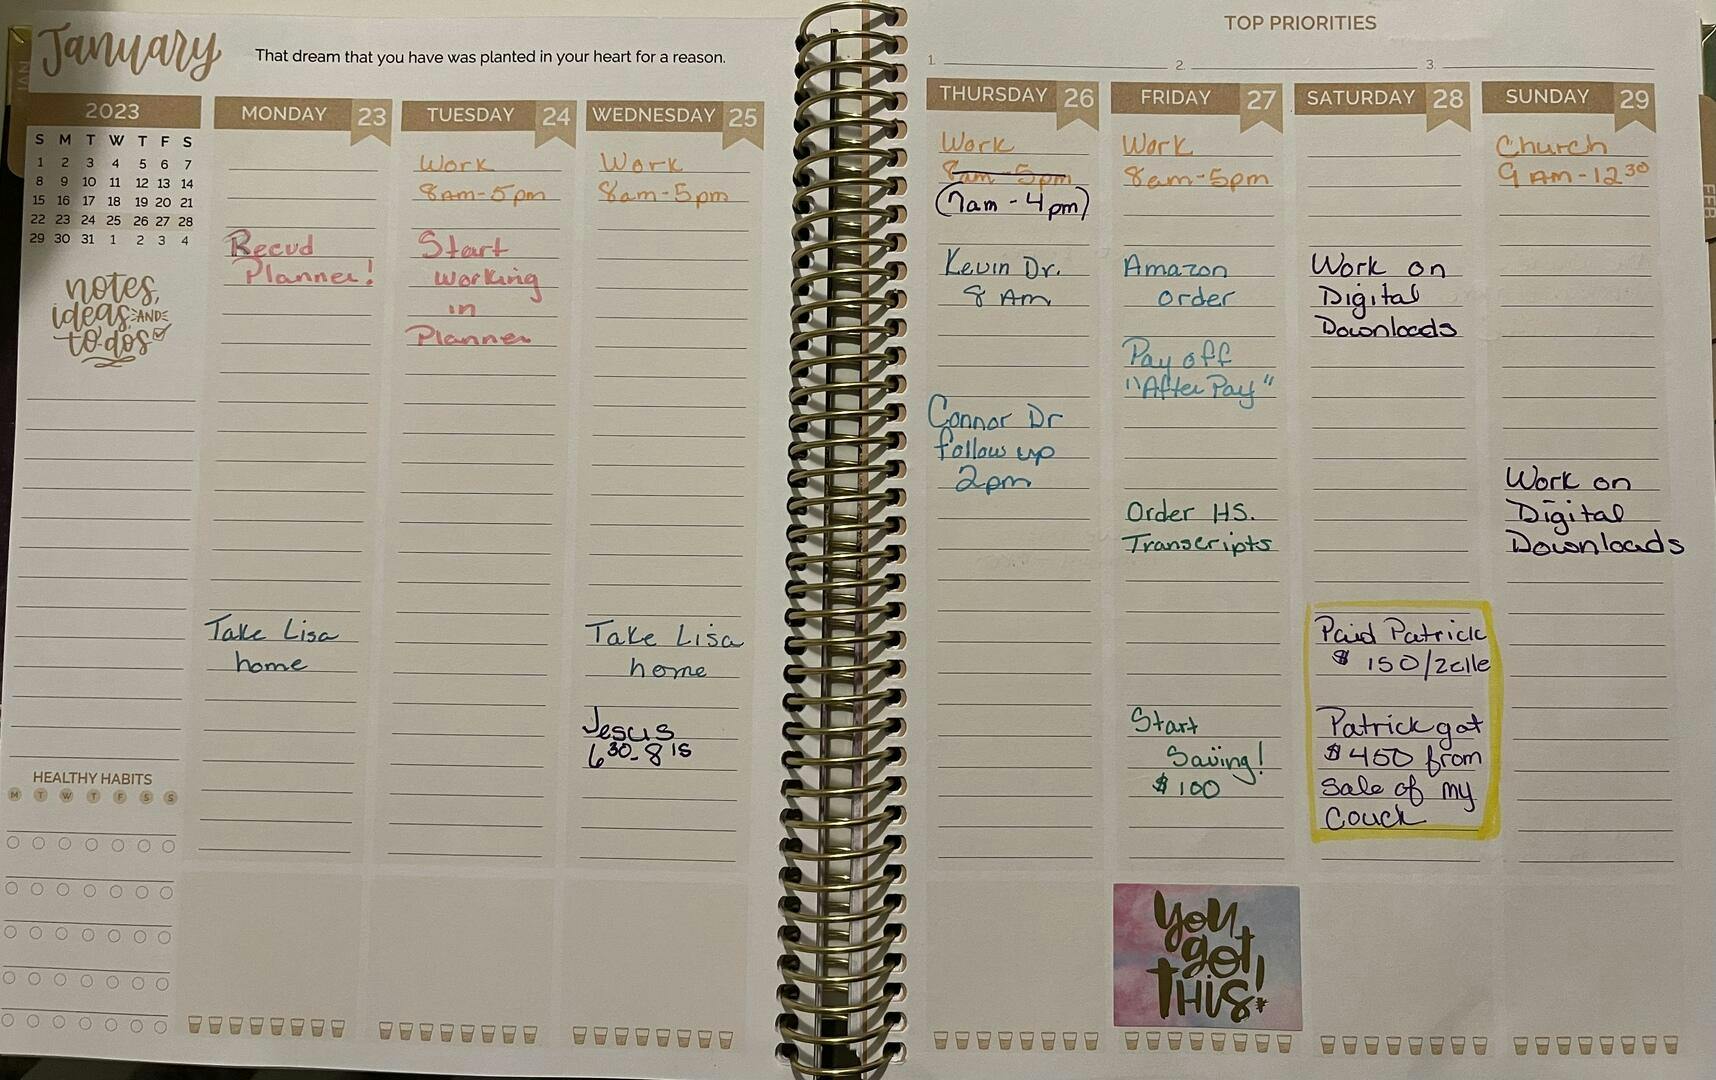 January
That dream that you have was planted in your heart for a reason.
JAN
2023
S M T W T F S
1 2 3 4 5 6 7
8 9 10 11 12 13 14
15 16 17 18 19 20 21
22 23 24 25 26 27 28
29 30 31 1 2 3 4
notes,
ideas, AND
to-dos
HEALTHY HABITS
M T W T F S S
MONDAY 23
Recvd
Planner!
Take Lisa
home
TUESDAY 24
Work
8am-5pm
Start
working
in
Planner
WEDNESDAY 25
Work
8am-5pm
Take Lisa
home
Jesus
6 30 - 8 15
TOP PRIORITIES
1. 2. 3.
THURSDAY 26
Work
8am-5pm
(7am-4pm)
Kevin Dr.
8 Am
Connor Dr
follow up
2pm
FRIDAY 27
Work
8am-5pm
Amazon
order
Pay off
"After Pay"
Order HS.
Transcripts
Start
Saving!
$100
You
got
THIS!
SATURDAY 28
Work on
Digital
Downloads
Paid Patrick
$150/zelle
Patrick got
$450 from
sale of my
Couch
SUNDAY 29
Church
9 AM-12 30
Work on
Digital
Downloads
FEB